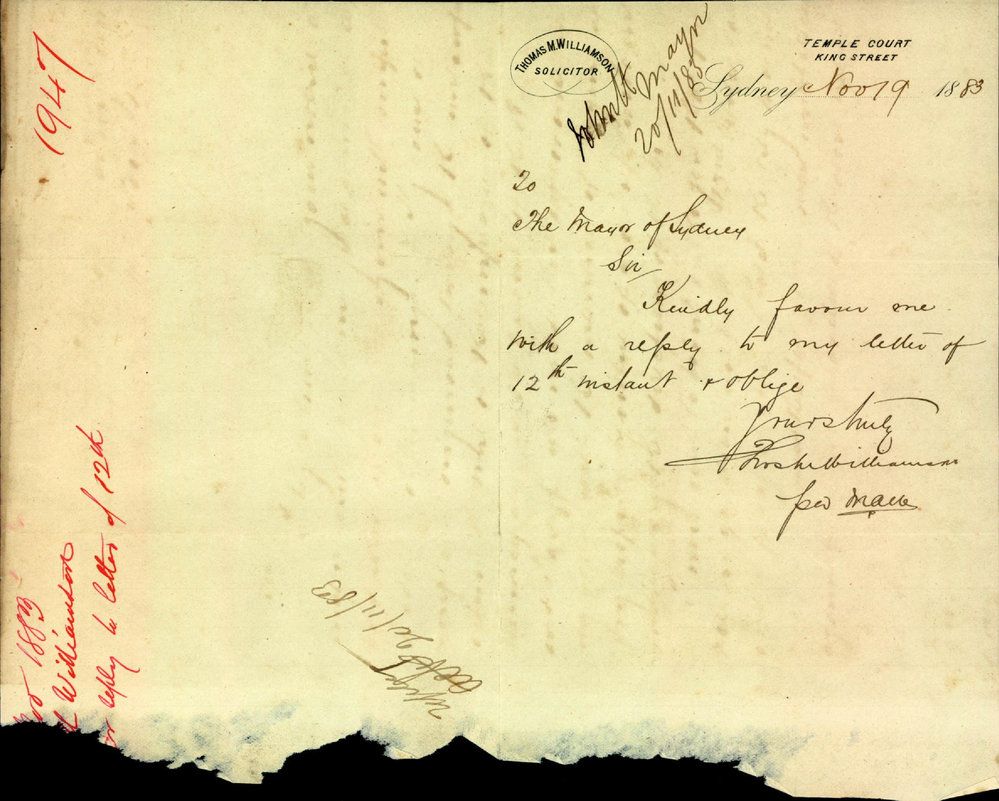 THOMAS M. WILLIAMSON
SOLICITOR
TEMPLE COURT
KING STREET
Sydney Nov 19 1883
Mayor
20/11/83
To
The Mayor of Sydney
Sir
Kindly favour me
with a reply to my letter of
12th instant & oblige
Yours truly
Thos M Williamson
per
1947
1883
Williamson
reply to letter of 12th
/11/83